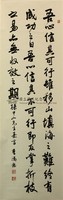 吾心信其可行则移山填海之难终有
成功之日吾心信其不可行则反掌折枝
之易亦无收效之期